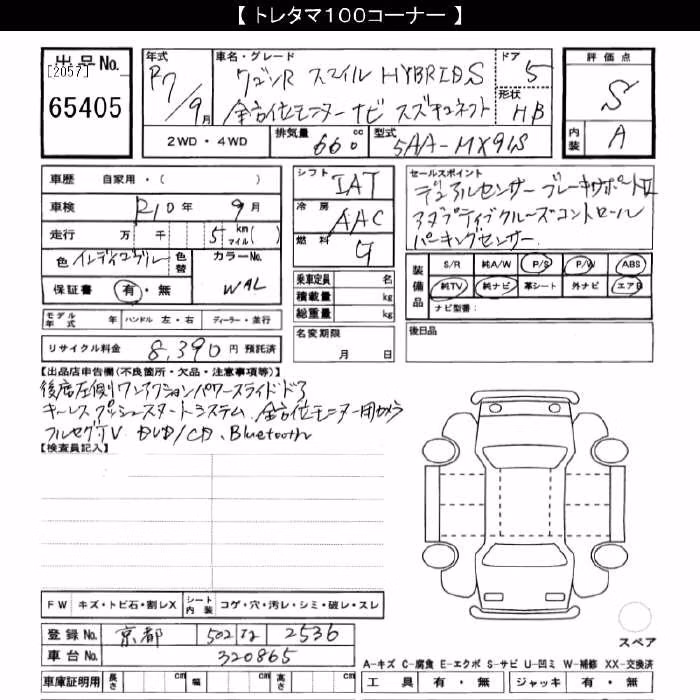 【 トレタマ100コーナー 】
出品No.
[2057]
65405
年式
R7/9月
車名・グレード
ワゴンR スマイル HYBRID S
全方位モニターナビ スズキコネクト
ドア
5
形状
HB
評価点
S
内装
A
2WD・4WD
排気量
660 cc
型式
5AA-MX91S
車歴 自家用・( )
車検 R10年 9月
走行 万 千 5 km マイル( )
色 インディゴブルー 色替
カラーNo.
WAL
保証書 有・無
モデル年式 年 ハンドル 左・右 ディーラー・並行
リサイクル料金 8,390 円 預託済
シフト IAT
冷房 AAC
燃料 G
乗車定員 名
積載量 kg
総重量 kg
名変期限
月 日
セールスポイント
デュアルセンサーブレーキサポートⅡ
アダプティブクルーズコントロール
パーキングセンサー
装備品
S/R 純A/W P/S P/W ABS
純TV 純ナビ 革シート 外ナビ エアB
ナビ型番:
後日品
【出品店申告欄(不良箇所・欠品・注意事項等)】
後席左側ワンアクションパワースライドドア
キーレスプッシュスタートシステム、全方位モニター用カメラ
フルセグTV DVD/CD、Bluetooth
【検査員記入】
FW キズ・トビ石・割レX シート内装 コゲ・穴・汚レ・シミ・破レ・スレ
登録No. 京都 502 2536
車台No. 320865
車庫証明用 長さ cm 幅 cm 高さ cm
スペア
A-キズ C-腐食 E-エクボ S-サビ U-凹ミ W-補修 XX-交換済
工具 有・無 ジャッキ 有・無